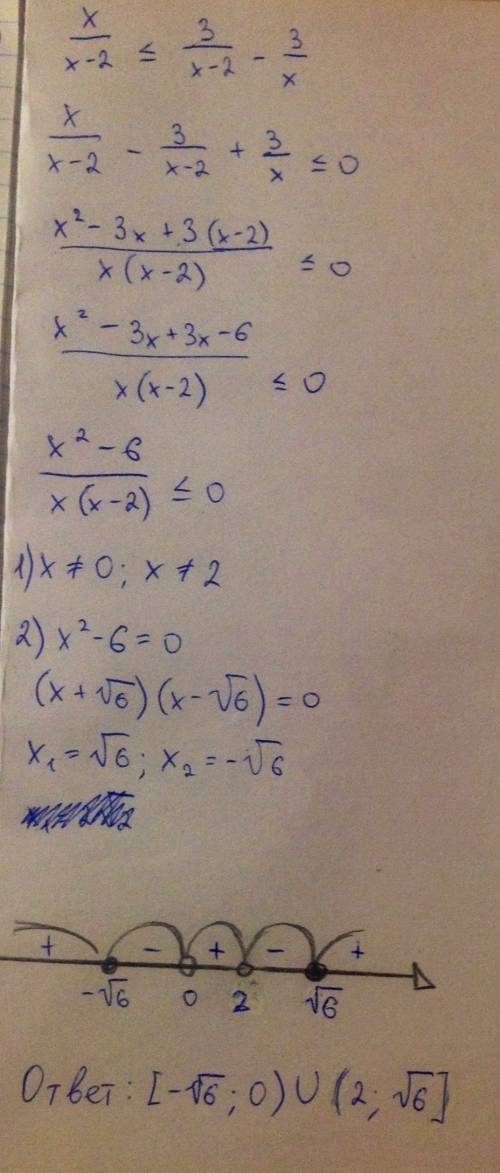 x/(x-2) ≤ 3/(x-2) - 3/x
x/(x-2) - 3/(x-2) + 3/x ≤ 0
(x² - 3x + 3(x-2))/(x(x-2)) ≤ 0
(x² - 3x + 3x - 6)/(x(x-2)) ≤ 0
(x² - 6)/(x(x-2)) ≤ 0
1) x ≠ 0; x ≠ 2
2) x² - 6 = 0
(x + √6)(x - √6) = 0
x₁ = √6; x₂ = -√6
+ - + - +
-√6 0 2 √6
Ответ: [-√6; 0) ∪ (2; √6]